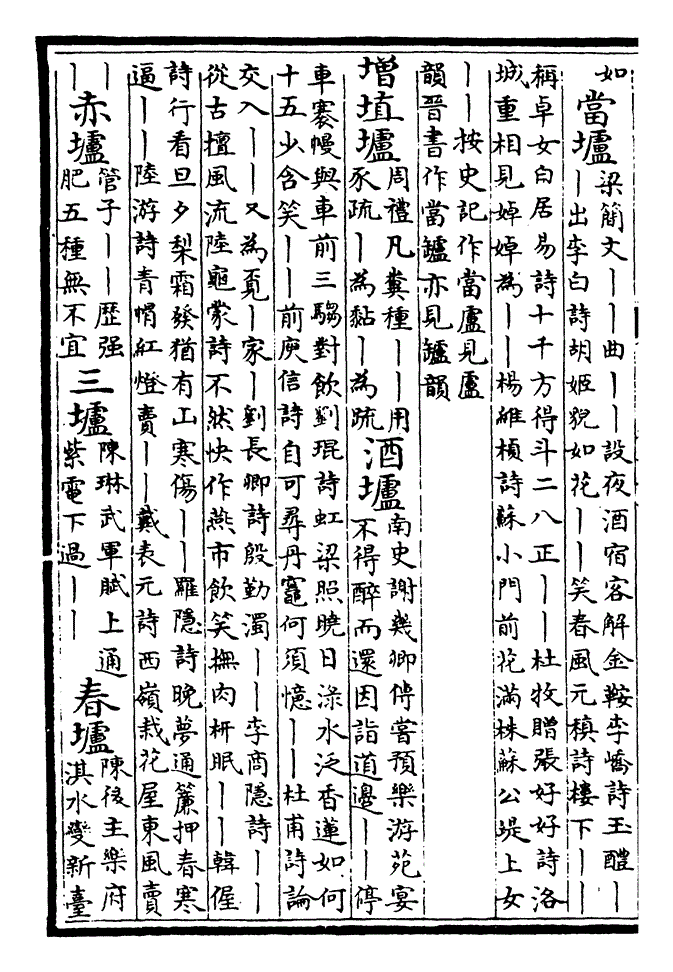 如
當壚
梁簡文｜｜曲｜｜設夜酒宿客解金鞍李嶠詩玉醴｜
｜出李白詩胡姬貌如花｜｜笑春風元稹詩樓下｜｜
稱卓女白居易詩十千方得斗二八正｜｜杜牧贈張好好詩洛
城重相見婥婥為｜｜楊維楨詩蘇小門前花滿株蘇公堤上女
｜｜按史記作當盧見盧
韻晉書作當罏亦見罏韻
增埴壚
周禮凡糞種｜｜用
豕疏｜為黏｜為疏
酒壚
南史謝幾卿傳嘗預樂游苑宴
不得醉而還因詣道邊｜｜停
車褰幔與車前三騶對飲劉琨詩虹梁照曉日淥水泛香蓮如何
十五少含笑｜｜前庾信詩自可尋丹竈何須憶｜｜杜甫詩論
交入｜｜又為覓｜家｜劉長卿詩殷勤濁｜｜李商隱詩｜｜
從古擅風流陸龜蒙詩不然快作燕市飲笑撫肉枅眠｜｜韓偓
詩行看旦夕梨霜發猶有山寒傷｜｜羅隱詩晚夢通簾押春寒
逼｜｜陸游詩青帽紅燈賣｜｜戴表元詩西嶺栽花屋東風賣
｜｜
赤壚
管子｜｜歷强
肥五種無不宜
三壚
陳琳武軍賦上通
紫電下過｜｜
春壚
陳後主樂府
淇水變新臺